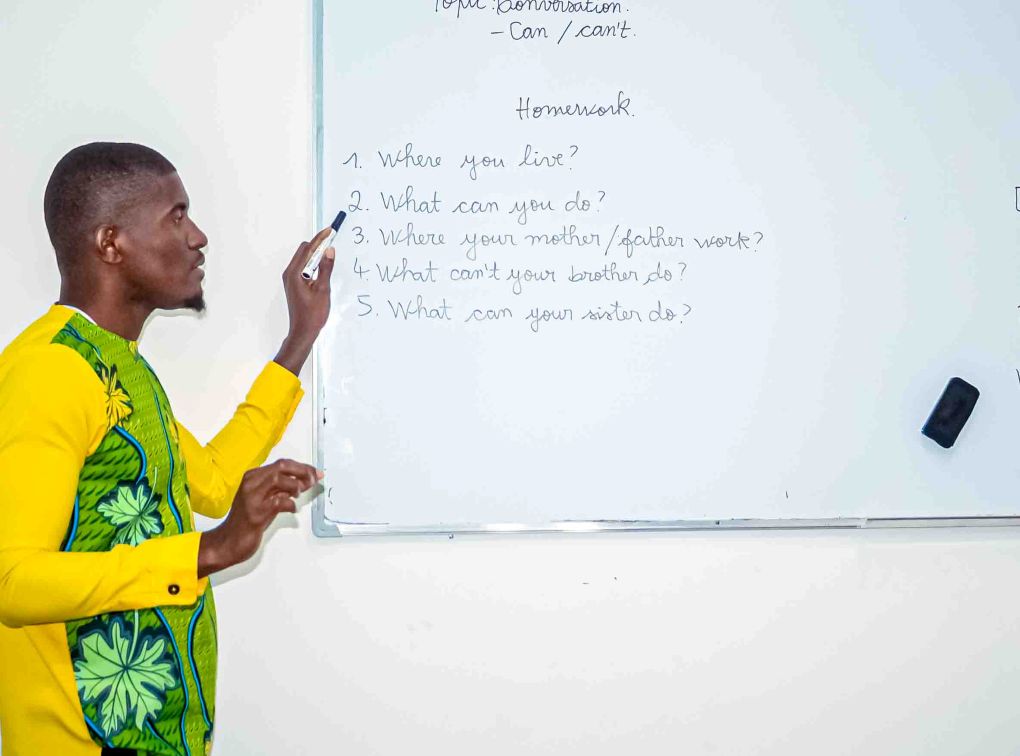 Topic: Conversation.
- Can / can't.
Homework.
1. Where you live?
2. What can you do?
3. Where your mother/father work?
4. What can't your brother do?
5. What can your sister do?